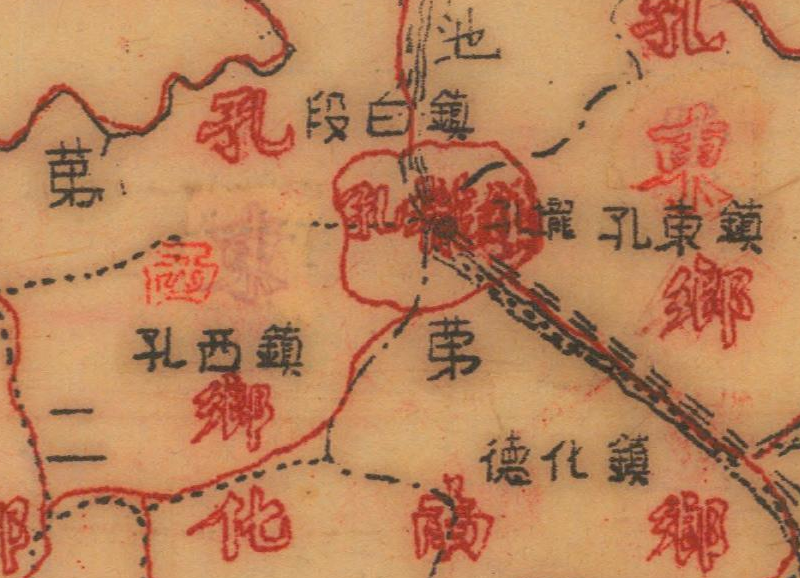 池
孔
段白鎮
孔
東
第
孔壠
孔東鎮
西
鄉
孔西鎮
第
鄉
二
德化鎮
化
鄉